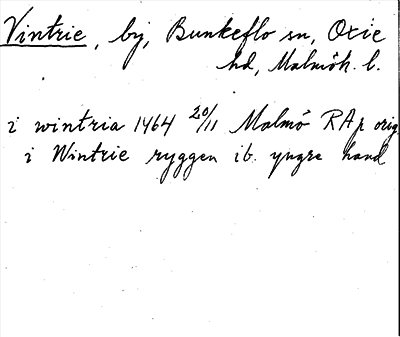 Vintrie, by, Bunkeflo sn, Oxie
hd, Malmöh. l.
i wintria 1464 20/11 Malmö RAp orig.
i Wintrie ryggen ib. yngre hand